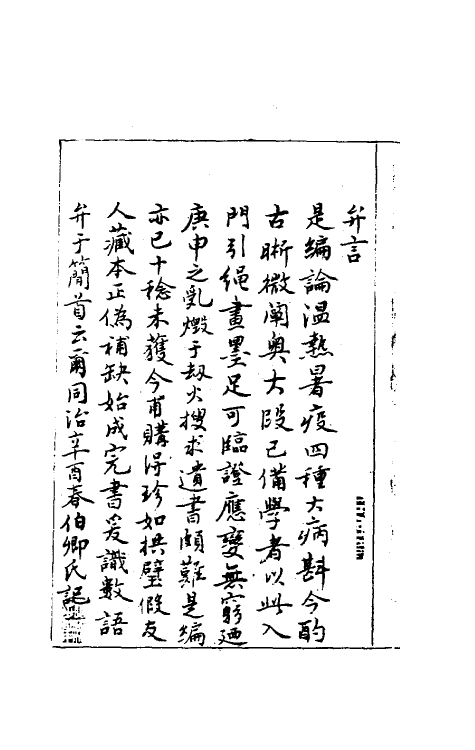 弁言
是編論温熱暑疫四種大病斟今酌
古晰微闡奥大段已備學者以此入
門引繩畫墨足可臨證應變無窮廼
庚申之亂燬于刼火搜求遺書頗難是編
亦已十稔未獲今甫購得珍如拱璧假友
人藏本正偽補缺始成完書爰識數語
弁于簡首云爾同治辛酉春伯卿氏記